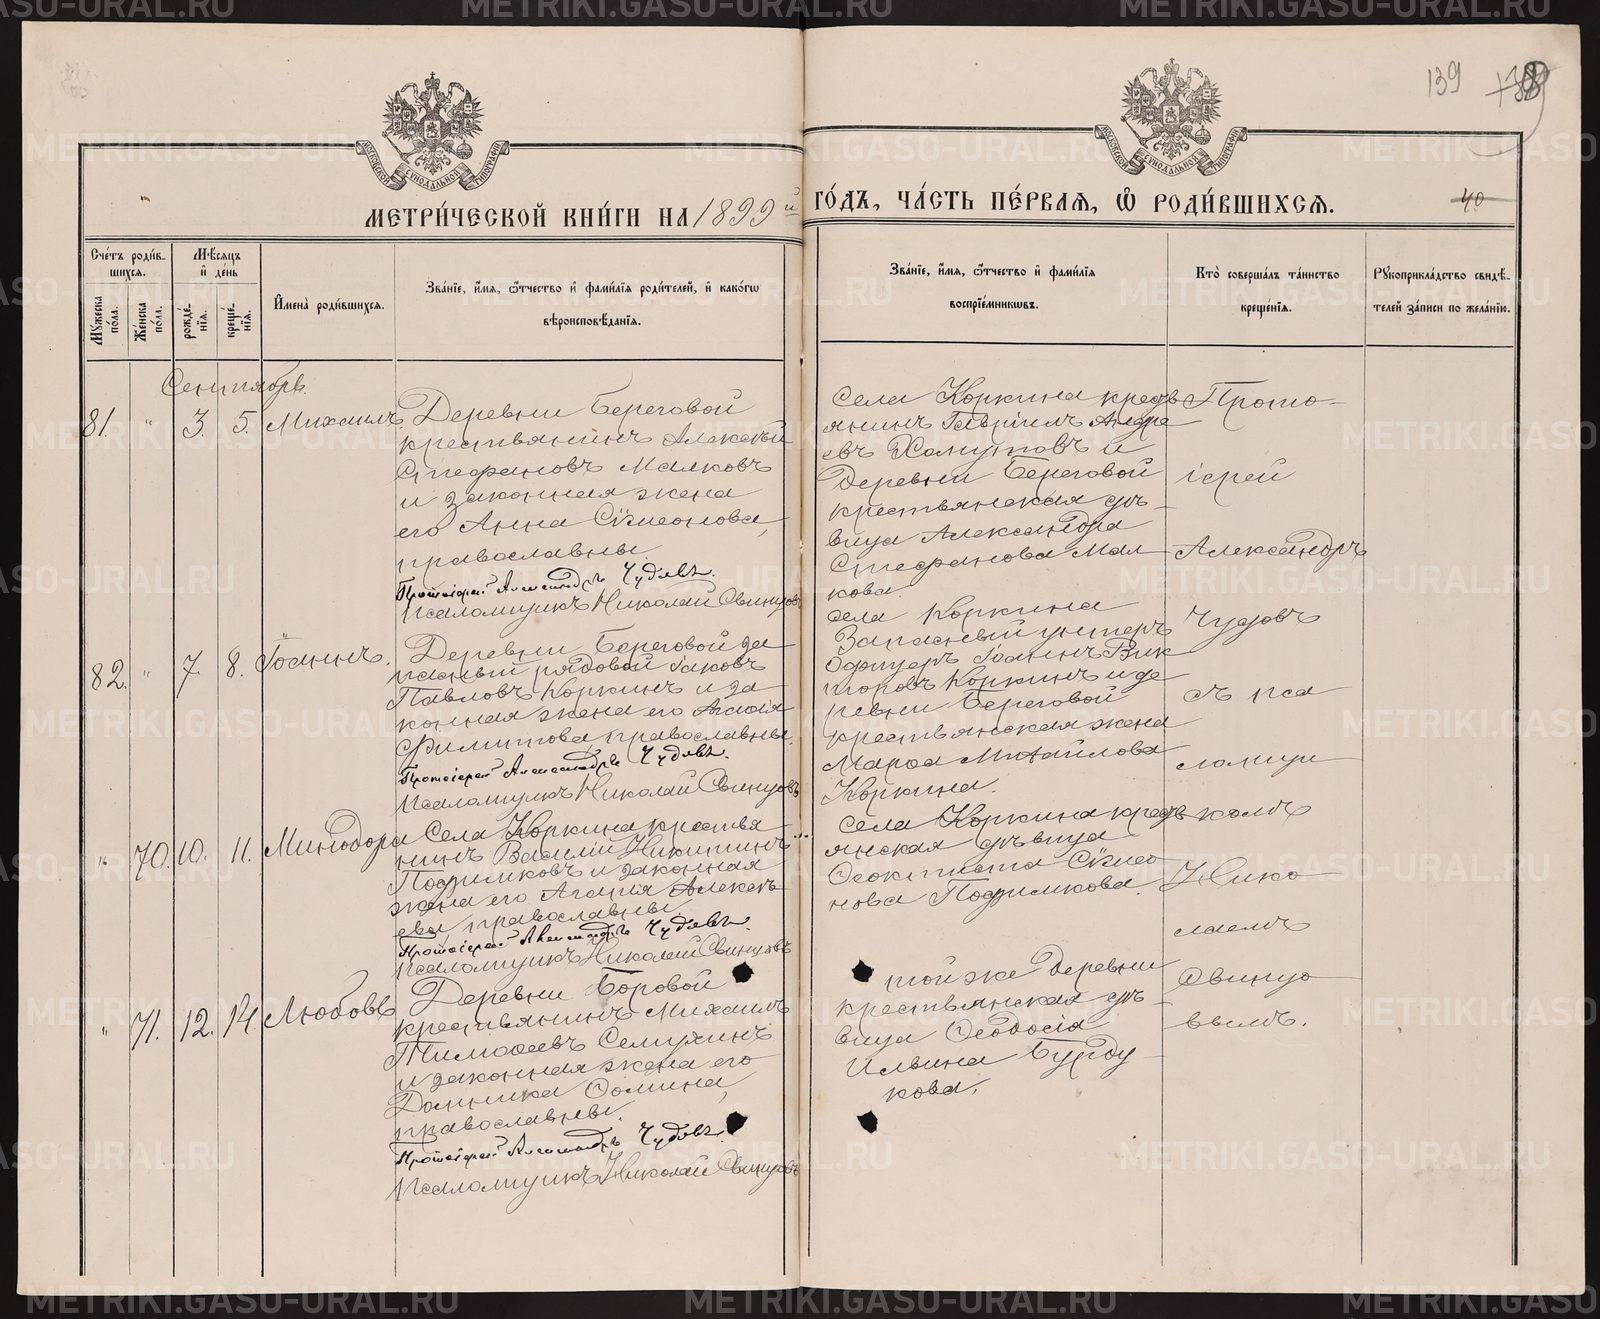 139
МЕТРИ́ЧЕСКОЙ КНИ́ГИ НА 1899й ГО́ДЪ, ЧА́СТЬ ПЕ́РВАЯ, Ѡ РОДИ́ВШИХСЯ.
40
Сче́тъ роди́в-
шихся.
Мѣ́сяцъ
и҆ де́нь
Мꙋ́жеска
по́ла.
Же́нска
по́ла.
рожде́-
нїя.
креще́-
нїя.
И҆мена̀ роди́вшихся.
Зва́нїе, и҆́мя, ѻ҆́тчество и҆ фами́лїя роди́телей, и҆ како́гѡ
вѣроисповѣ́данїя.
Зва́нїе, и҆́мя, ѻ҆́тчество и҆ фами́лїя
воспрїе́мникѡвъ.
Кто̀ соверша́лъ та́инство
креще́нїя.
Рꙋкоприкла́дство свидѣ́-
телей за́писи по жела́нїю.
Сентябрь.
81. " 3. 5. Михаилъ.
Деревни Береговой
крестьянинъ Алексѣй
Стефановъ Малковъ
и законная жена
его Анна Сѵмеонова,
православны.
Протоіерей Александръ Чудовъ.
Псаломщикъ Николай Свинцовъ
села Коркина кресть
янинъ Гавріилъ Андре
евъ Хомутовъ и
деревни Береговой
крестьянская дѣ-
вица Александра
Стефанова Мал
кова.
82. " 7. 8. Іоаннъ.
Деревни Береговой за
пасный рядовой Іаковъ
Павловъ Коркинъ и за
конная жена его Агаѳія
Филиппова православны.
Протоіерей Александръ Чудовъ.
Псаломщикъ Николай Свинцовъ
села Коркина
Запасный унтеръ
Офицеръ Іоаннъ Вик
торовъ Коркинъ и де
ревни Береговой
крестьянская жена
Марѳа Михайлова
Коркина.
" 70. 10. 11. Минодора
Села Коркина крестья
нинъ Василій Никитинъ
Пофимковъ и законная
жена его Агапія Алексѣ
ева, православны.
Протоіерей Александръ Чудовъ.
Псаломщикъ Николай Свинцовъ
села Коркина кресть
янская дѣвица
Ѳеоктиста Сѵмео
нова Пофимкова.
" 71. 12. 14. Любовь
Деревни Боровой
крестьянинъ Михаилъ
Тимоѳеевъ Семухинъ
и законная жена его
Домника Ѳомина,
православны.
Протоіерей Александръ Чудовъ.
Псаломщикъ Николай Свинцовъ
той же деревни
крестьянская дѣ-
вица Ѳеодосія
Ильина Бурду
кова.
Прото-
іерей
Александръ
Чудовъ
съ пса
ломщи
комъ
Нико
лаемъ
Свинцо
вымъ.
METRIKI.GASO-URAL.RU